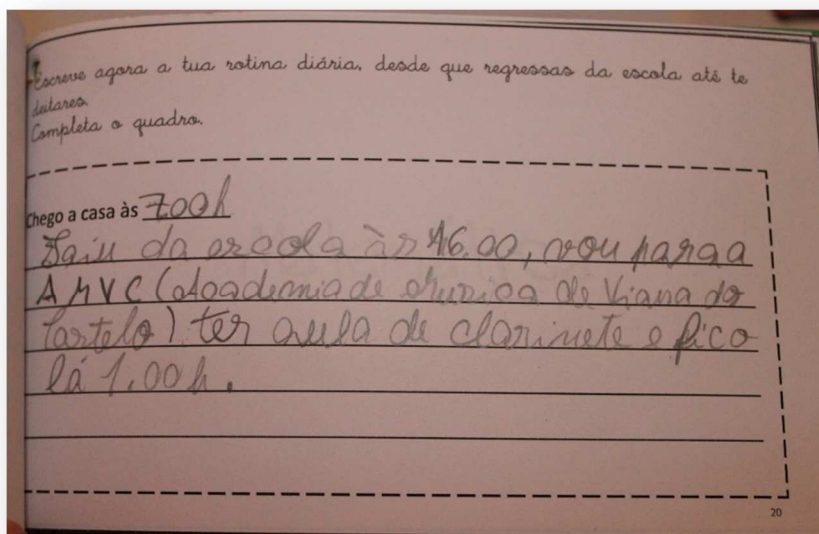 Escreve agora a tua rotina diária, desde que regressas da escola até te
deitares.
Completa o quadro.
Chego a casa às 7.00h
Saiu da escola às 16.00, vou para a
AMVC (Academia de Musica de Viana do
Castelo) ter aula de clarinete e fico
lá 1.00h.
20